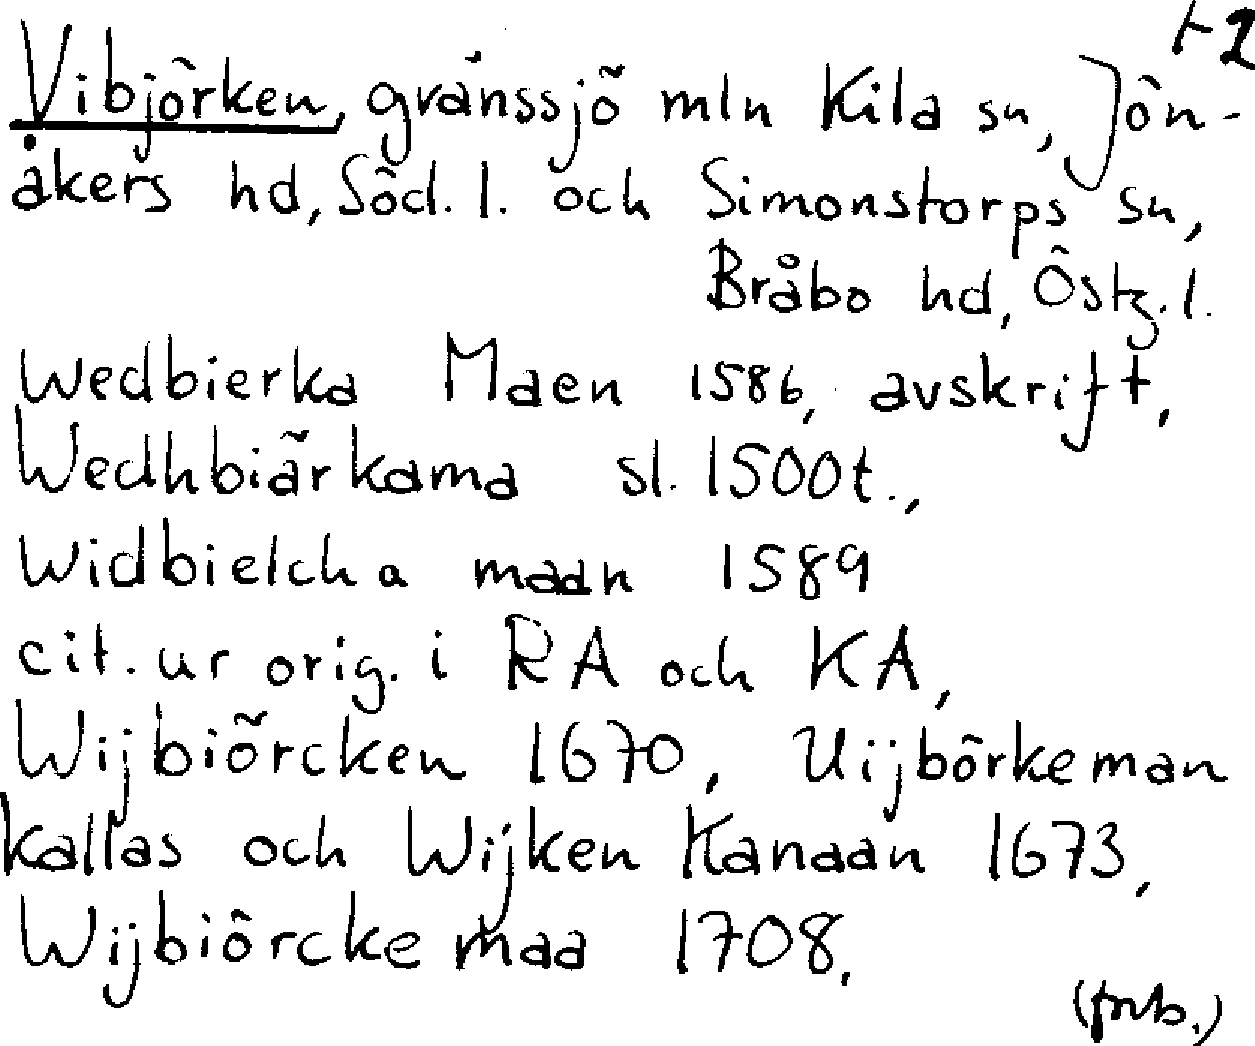 +2
Vibjörken, gränssjö mln Kila sn, Jön-
åkers hd, Söd. l. och Simonstorps sn,
Bråbo hd, Östg. l.
Wedbierka Maen 1586, avskrift,
Wedhbiärkama sl. 1500t.,
Widbielcha maan 1589
cit. ur orig. i RA och KA,
Wijbiörcken 1670, Uijbörkeman
kallas och Wijken Kanaan 1673,
Wijbiörcke maa 1708.
(forts.)